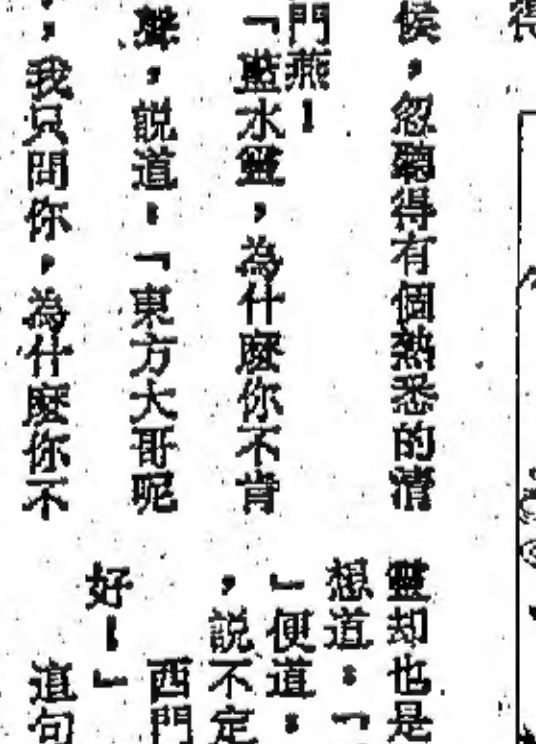 得
候，忽聽得有個熟悉的清
門燕！
「藍水靈，為什麼你不肯
聲，說道：「東方大哥呢
，我只問你，為什麼你不
靈却也是
想道：「
」便道：
，說不定
西門
好！」
這句